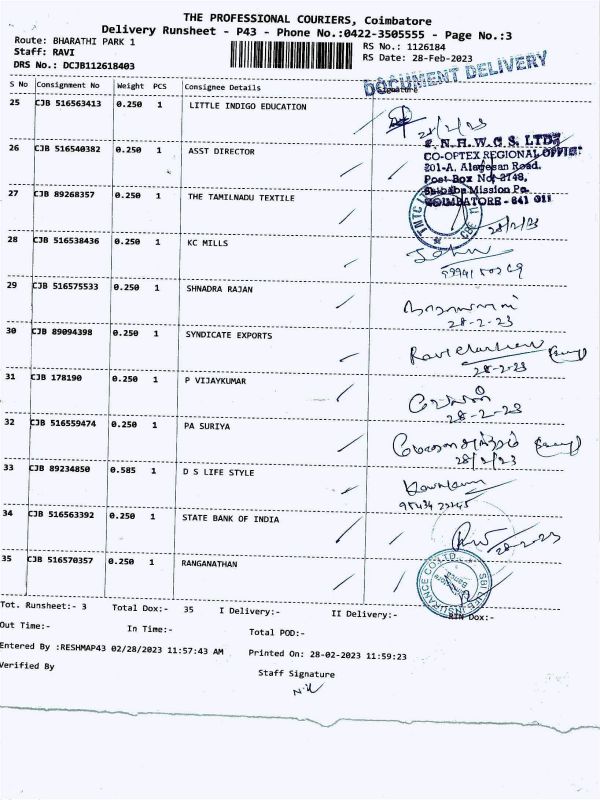 THE PROFESSIONAL COURIERS, Coimbatore
Delivery Runsheet - P43 - Phone No.:0422-3505555 - Page No.:3
Route: BHARATHI PARK 1
RS No.: 1126184
Staff: RAVI
RS Date: 28-Feb-2023
DRS No.: DCJB112618403
DOCUMENT DELIVERY
S No Consignment No Weight PCS Consignee Details Signature
25 CJB 516563413 0.250 1 LITTLE INDIGO EDUCATION
28/2/23
26 CJB 516540382 0.250 1 ASST DIRECTOR
T. N. H. W. C. S. LTD.
CO-OPTEX REGIONAL OFFICE
201-A, Alagesan Road,
Post Box No: 3748,
Saibaba Mission Po.
COIMBATORE - 641 011
27 CJB 89268357 0.250 1 THE TAMILNADU TEXTILE
28/2/23
28 CJB 516538436 0.250 1 KC MILLS
John
29 CJB 516575533 0.250 1 SHNADRA RAJAN
28-2-23
30 CJB 89094398 0.250 1 SYNDICATE EXPORTS
28-2-23
31 CJB 178190 0.250 1 P VIJAYKUMAR
28-2-23
32 CJB 516559474 0.250 1 PA SURIYA
28/2/23
33 CJB 89234850 0.585 1 D S LIFE STYLE
34 CJB 516563392 0.250 1 STATE BANK OF INDIA
28-2-23
35 CJB 516570357 0.250 1 RANGANATHAN
SBI LIFE INSURANCE CO. LTD.
Tot. Runsheet:- 3 Total Dox:- 35 I Delivery:- II Delivery:- RTN Dox:-
Out Time:- In Time:- Total POD:-
Entered By :RESHMAP43 02/28/2023 11:57:43 AM Printed On: 28-02-2023 11:59:23
Verified By
Staff Signature